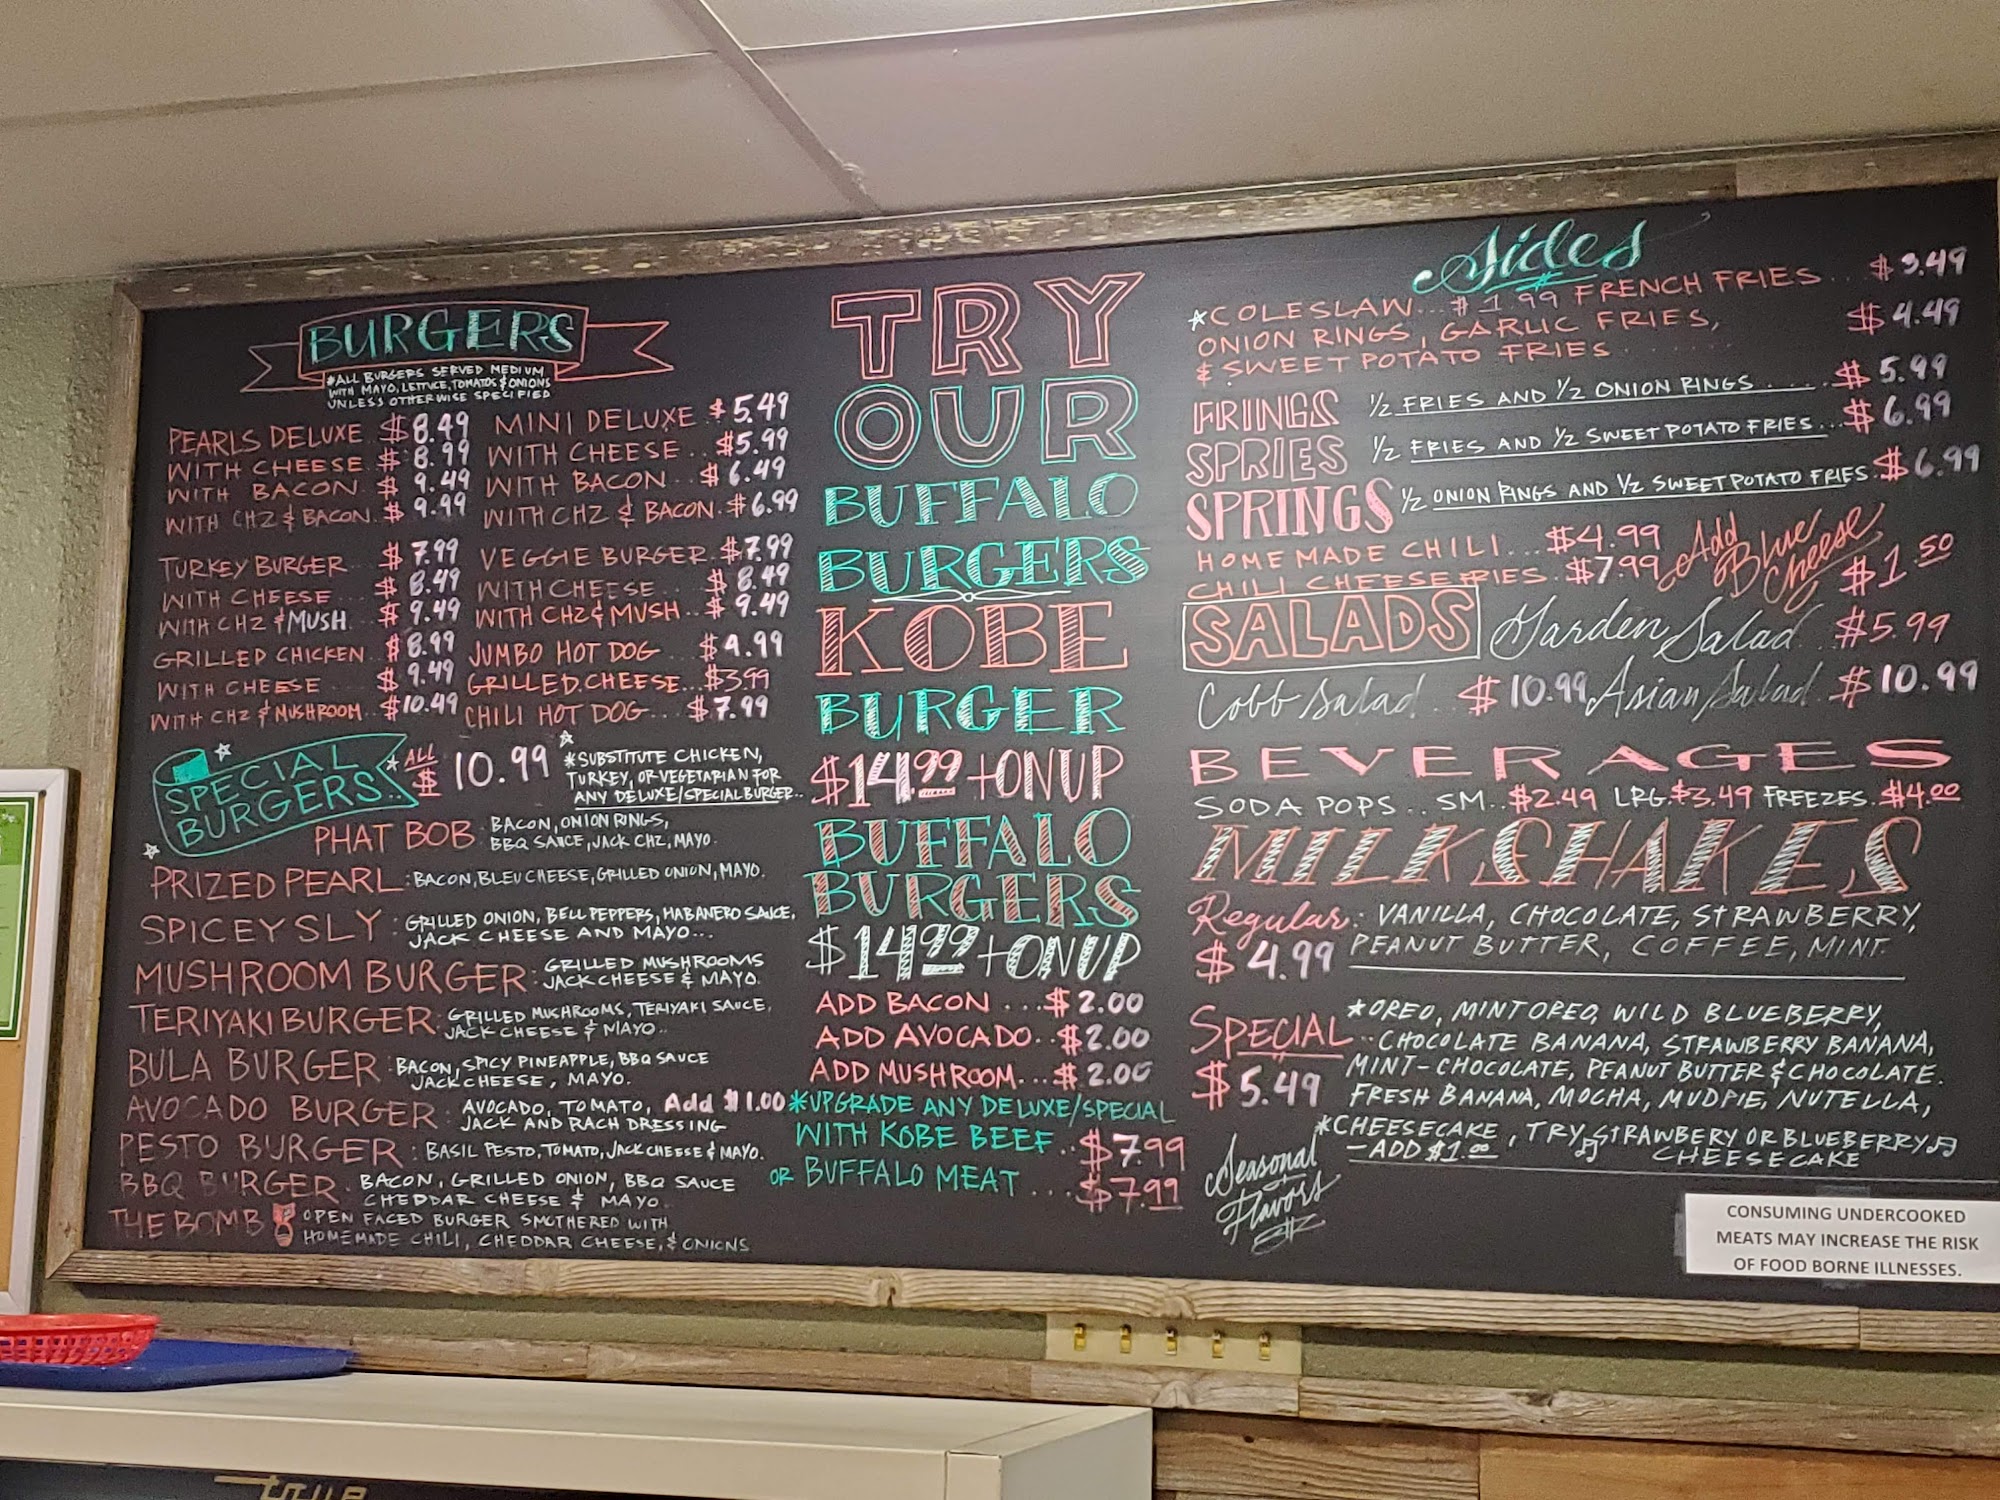 BURGERS
*ALL BURGERS SERVED MEDIUM
WITH MAYO, LETTUCE, TOMATOS & ONIONS
UNLESS OTHERWISE SPECIFIED
PEARLS DELUXE $8.49
WITH CHEESE $8.99
WITH BACON $9.49
WITH CHZ & BACON $9.99
MINI DELUXE $5.49
WITH CHEESE $5.99
WITH BACON $6.49
WITH CHZ & BACON $6.99
TURKEY BURGER $7.99
WITH CHEESE $8.49
WITH CHZ & MUSH $9.49
VEGGIE BURGER $7.99
WITH CHEESE $8.49
WITH CHZ & MUSH $9.49
GRILLED CHICKEN $8.99
WITH CHEESE $9.49
WITH CHZ & MUSHROOM $10.49
JUMBO HOT DOG $4.99
GRILLED CHEESE $3.99
CHILI HOT DOG $7.99
SPECIAL
BURGERS..
*ALL
$10.99
*SUBSTITUTE CHICKEN,
TURKEY, OR VEGETARIAN FOR
ANY DELUXE/SPECIAL BURGER..
PHAT BOB: BACON, ONION RINGS,
BBQ SAUCE, JACK CHZ, MAYO.
PRIZED PEARL: BACON, BLEU CHEESE, GRILLED ONION, MAYO.
SPICEY SLY: GRILLED ONION, BELL PEPPERS, HABANERO SAUCE,
JACK CHEESE AND MAYO...
MUSHROOM BURGER: GRILLED MUSHROOMS
JACK CHEESE & MAYO.
TERIYAKI BURGER: GRILLED MUSHROOMS, TERIYAKI SAUCE,
JACK CHEESE & MAYO..
BULA BURGER: BACON, SPICY PINEAPPLE, BBQ SAUCE
JACK CHEESE, MAYO.
AVOCADO BURGER: AVOCADO, TOMATO, Add $1.00
JACK AND RACH DRESSING
PESTO BURGER: BASIL PESTO, TOMATO, JACK CHEESE & MAYO.
BBQ BURGER: BACON, GRILLED ONION, BBQ SAUCE
CHEDDAR CHEESE & MAYO.
THE BOMB OPEN FACED BURGER SMOTHERED WITH
HOMEMADE CHILI, CHEDDAR CHEESE, & ONIONS
TRY
OUR
BUFFALO
BURGERS
KOBE
BURGER
$14.99 + ON UP
BUFFALO
BURGERS
$14.99 + ON UP
ADD BACON ...$2.00
ADD AVOCADO..$2.00
ADD MUSHROOM...$2.00
*UPGRADE ANY DELUXE/SPECIAL
WITH KOBE BEEF..$7.99
OR BUFFALO MEAT ...$7.99
Sides
*COLESLAW...$1.99 FRENCH FRIES...$3.49
ONION RINGS, GARLIC FRIES, $4.49
& SWEET POTATO FRIES
FRINGS 1/2 FRIES AND 1/2 ONION RINGS $5.99
SPRIES 1/2 FRIES AND 1/2 SWEET POTATO FRIES... $6.99
SPRINGS 1/2 ONION RINGS AND 1/2 SWEET POTATO FRIES $6.99
HOMEMADE CHILI...$4.99
CHILI CHEESE FRIES.$7.99
Add Blue Cheese $1.50
SALADS
Garden Salad $5.99
Cobb Salad $10.99 Asian Salad $10.99
BEVERAGES
SODA POPS..SM..$2.49 LRG.$3.49 FREEZES.$4.00
MILKSHAKES
Regular: VANILLA, CHOCOLATE, STRAWBERRY,
$4.99 PEANUT BUTTER, COFFEE, MINT.
SPECIAL *OREO, MINT OREO, WILD BLUEBERRY,
CHOCOLATE BANANA, STRAWBERRY BANANA,
$5.49 MINT-CHOCOLATE, PEANUT BUTTER & CHOCOLATE.
FRESH BANANA, MOCHA, MUDPIE, NUTELLA,
*CHEESECAKE, TRY STRAWBERY OR BLUEBERRY
-ADD $1.00 CHEESECAKE
Seasonal
Flavors
CONSUMING UNDERCOOKED
MEATS MAY INCREASE THE RISK
OF FOOD BORNE ILLNESSES.
True